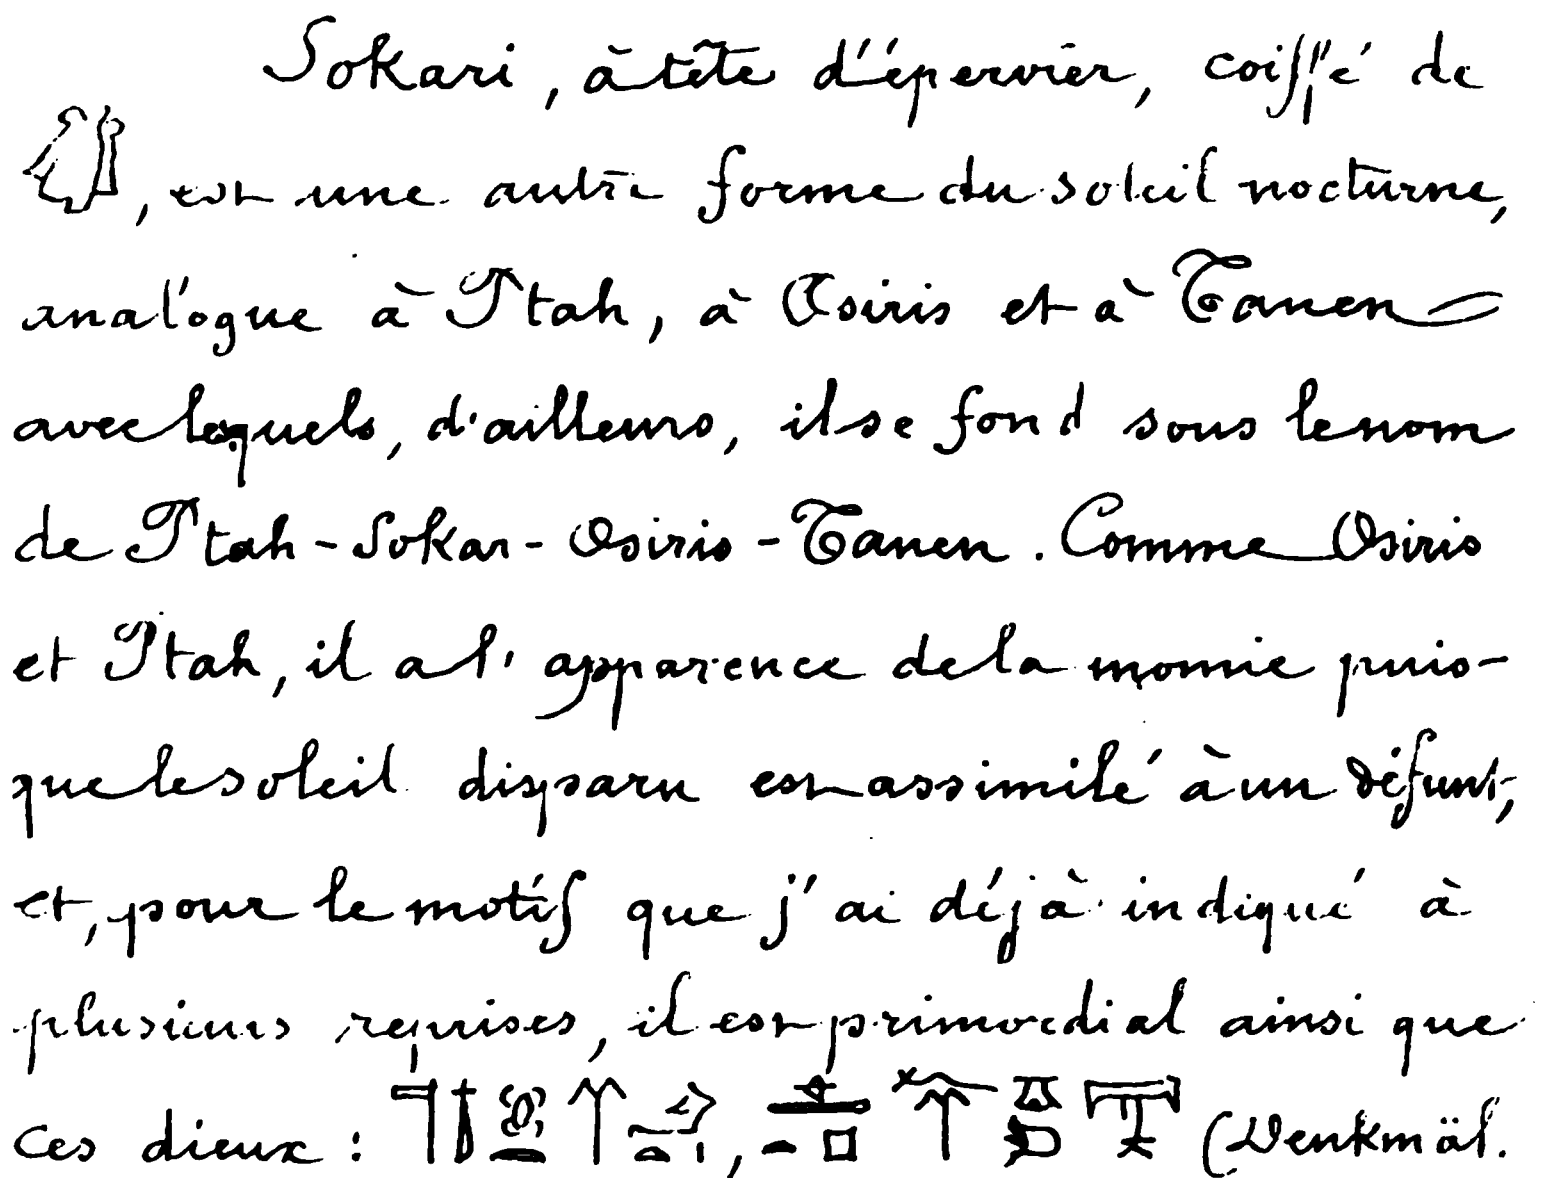 Sokari, à tête d'épervier, coiffé de
, est une autre forme du soleil nocturne,
analogue à Ptah, à Osiris et à Tanen
avec lesquels, d'ailleurs, il se fond sous le nom
de Ptah-Sokar-Osiris-Tanen. Comme Osiris
et Ptah, il a l'apparence de la momie puis-
que le soleil disparu est assimilé à un défunt,
et, pour le motif que j'ai déjà indiqué à
plusieurs reprises, il est primordial ainsi que
ces dieux : , (Denkmäl.